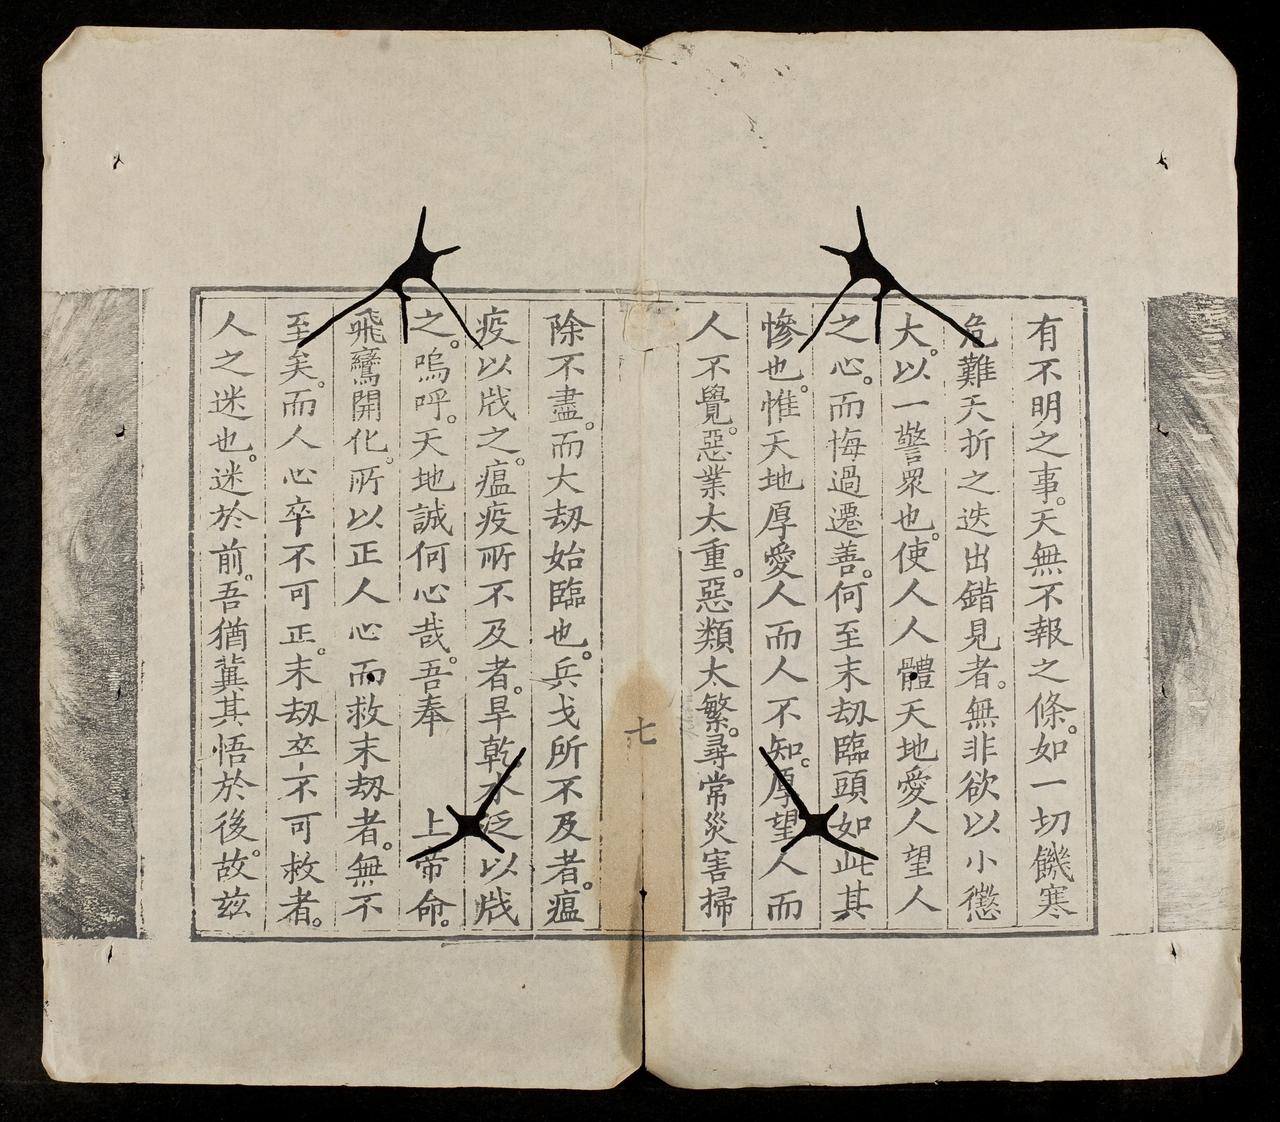 有不明之事。天無不報之條。如一切饑寒
危難夭折之迭出錯見者。無非欲以小懲
大。以一警衆也。使人人體天地愛人望人
之心。而悔過遷善。何至末刼臨頭如此其
慘也。惟天地厚愛人而人不知。厚望人而
人不覺。惡業太重。惡類太繁。尋常災害掃
七
除不盡。而大刼始臨也。兵戈所不及者。瘟
疫以戕之。瘟疫所不及者。旱乾水泛以戕
之。嗚呼。天地誠何心哉。吾奉 上帝命。
飛鸞開化。所以正人心而救末刼者。無不
至矣。而人心卒不可正。末刼卒不可救者。
人之迷也。迷於前。吾猶冀其悟於後。故玆